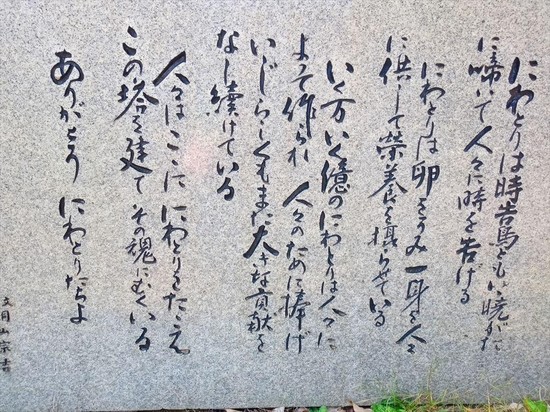 にわとりは時告鳥ともいい暁がた
に啼いて人々に時を告げる
にわとりは卵をうみ一身を人々
に供して栄養を摂らせている
いく万いく億のにわとりは人々に
よって作られ人々のために捧げ
いじらしくもまた大きな貢献を
なし続けている
人々はここににわとりをたたえ
この塔を建てその魂にむくいる
ありがとうにわとりたちよ